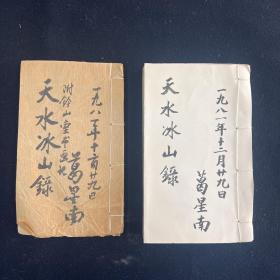 一九八一年十二月廿九日
葛星南
天水冰山錄
一九八一年十二月廿九日
附鈐山堂書畫記
葛星南
天水冰山錄